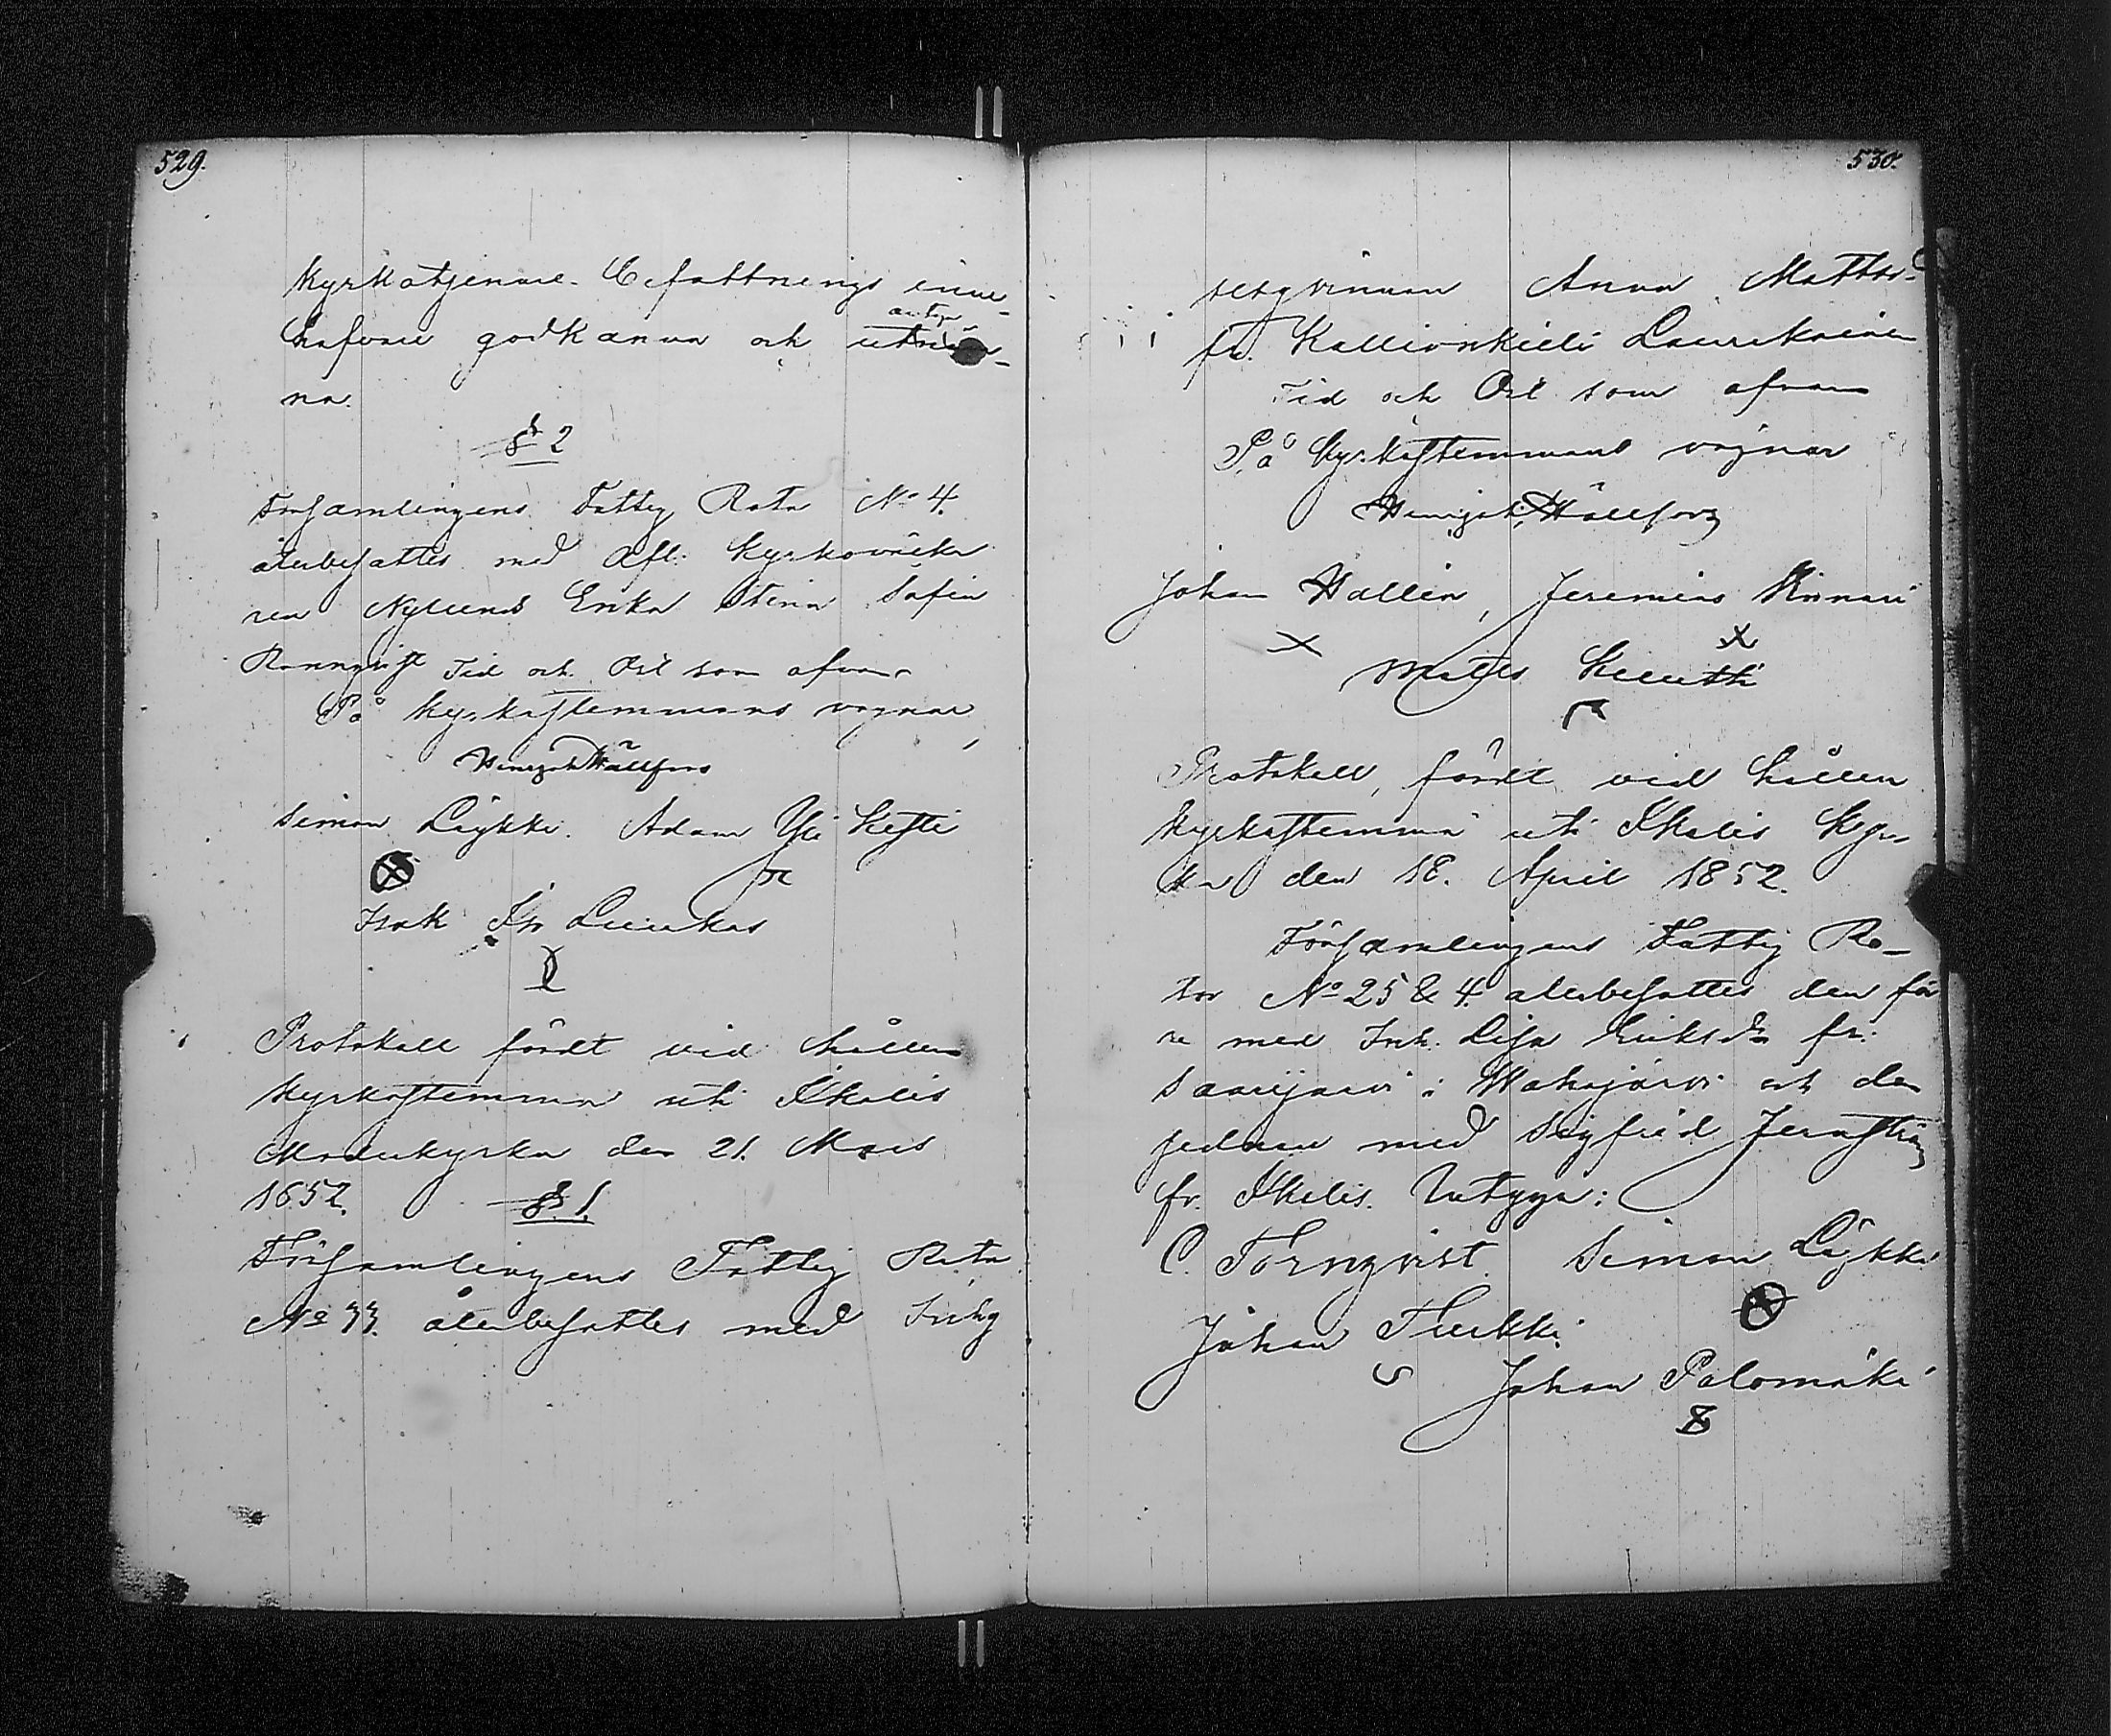 529.
Kyrkotjenare-befattnings inne-
hafvare godkänna och antaga
na.
§ 2
Församlingens Fattig Rota No 4.
återbesattes med Afl. Kyrkoväkta
ren Nylunds Enka Stina Sofia
Rönnqvist Tid och Ort som ofvan
På Kyrkostemmans vägnar
Wällfors
Simon Löykki. Adam Yli Kesti
Isak Iso Luukas
Protokoll fördt vid hållen
Kyrkostemma uti Ikalis
Moderkyrka den 21. Mars
1852. § 1.
Församlingens Fattig Rota
No 33. återbesattes med Inhy
530.
sesqvinnan Anna Matts
fr. Kallionkieli Laurikainen
Tid och Ort som ofvan
På Kyrkostemmans vägnar
Wällfors
Johan Wallin, Jeremias Kinnari
Matts Knuutti
Protokoll, fördt vid hållen
Kyrkostemma uti Ikalis Kyr-
ka den 18. April 1852.
Församlingens Fattig Ro-
tor No 25 & 4. återbesattes den för
ra med Inh. Lisa Eriksdr fr.
Saarijärvi i Wahojärvi och den
sednare med Sigfrid Jernström
fr. Ikalis. Intyga:
C. Törnqvist. Simon Löykki
Johan Turkki.
Johan Palomäki